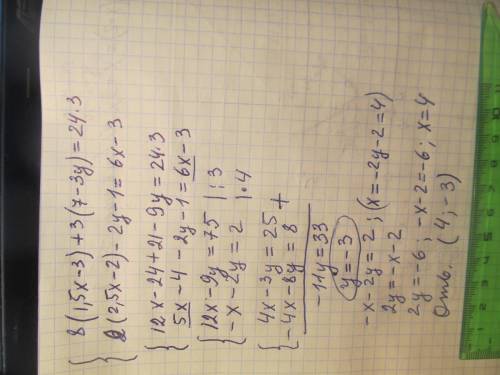 8(1,5x-3)+3(7-3y)=24·3
2(2,5x-2)-2y-1=6x-3
12x-24+21-9y=24·3
5x-4-2y-1=6x-3
12x-9y=75 |:3
-x-2y=2 |·4
4x-3y=25
-4x-8y=8 +
-11y=33
y=-3
-x-2y=2; (x=-2y-2=4)
2y=-x-2
2y=-6; -x-2=-6; x=4
Отв. (4;-3)